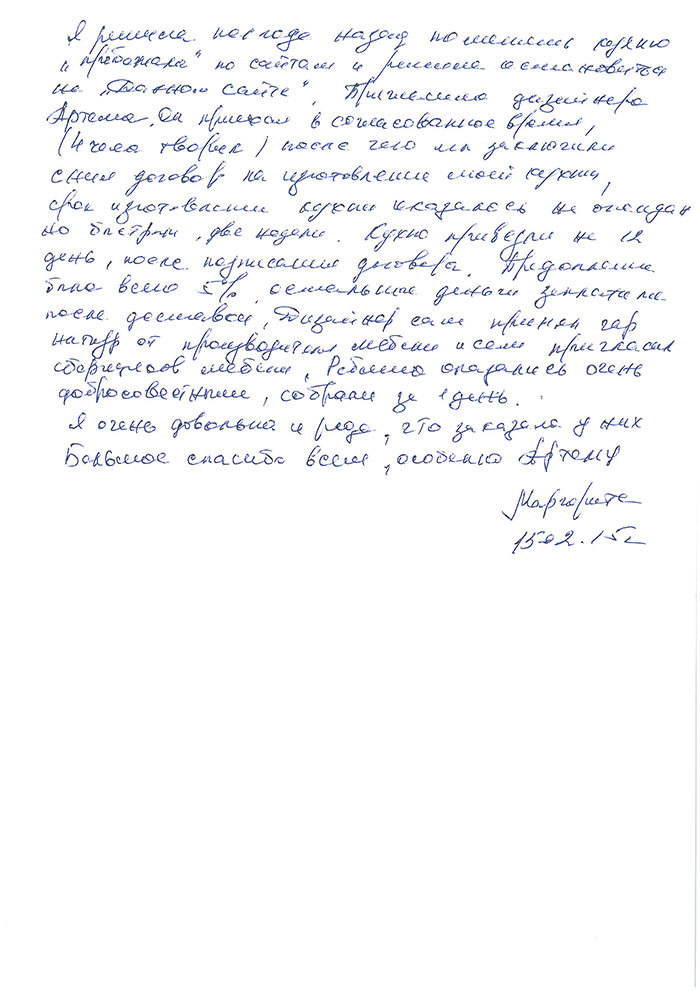 Я решила полгода назад поменять кухню
„пробежала" по сайтам и решила остановиться
на „Данном сайте". Пригласила дизайнера
Артема. Он приехал в согласованное время,
после чего мы заключили
с ним договор на изготовление моей кухни,
срок изготовления кухни оказалось не ожидан
но быстрый, две недели. Кухню привезли на 12
день, после подписания договора. Предоплата
была всего 5%, остальные деньги заплатила
после доставки, Дизайнер сам принял гар
нитур от производителя мебели и сам пригласил
сборщиков мебели, Ребята оказались очень
добросовестными, собрали за 1 день.
Я очень довольна и рада, что заказала у них
Большое спасибо всем, особенно Артему
Маргарита
15.02.15г